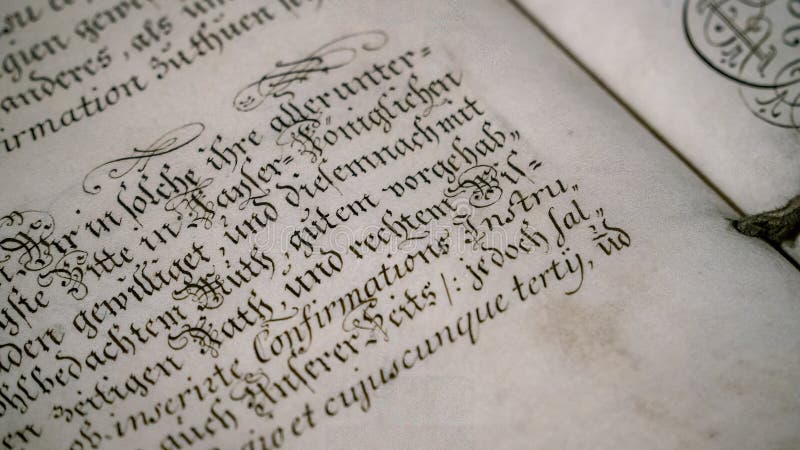 zu
gien gewe
anderes, als un
firmation Zuthüen se
Wir in solche ihre allerunter=
ste Bitte in Kayser= Königlichen
den gewilliget, und diesemnach mit
ohlbedachtem Muth, gutem vorgehab„
en Zeitigen Rath, und rechtem Wis=
ob. inserirte Confirmations Instru„
auch Unserer Seits /: jedoch sal„
quo et cujuscunque tertij, ūd